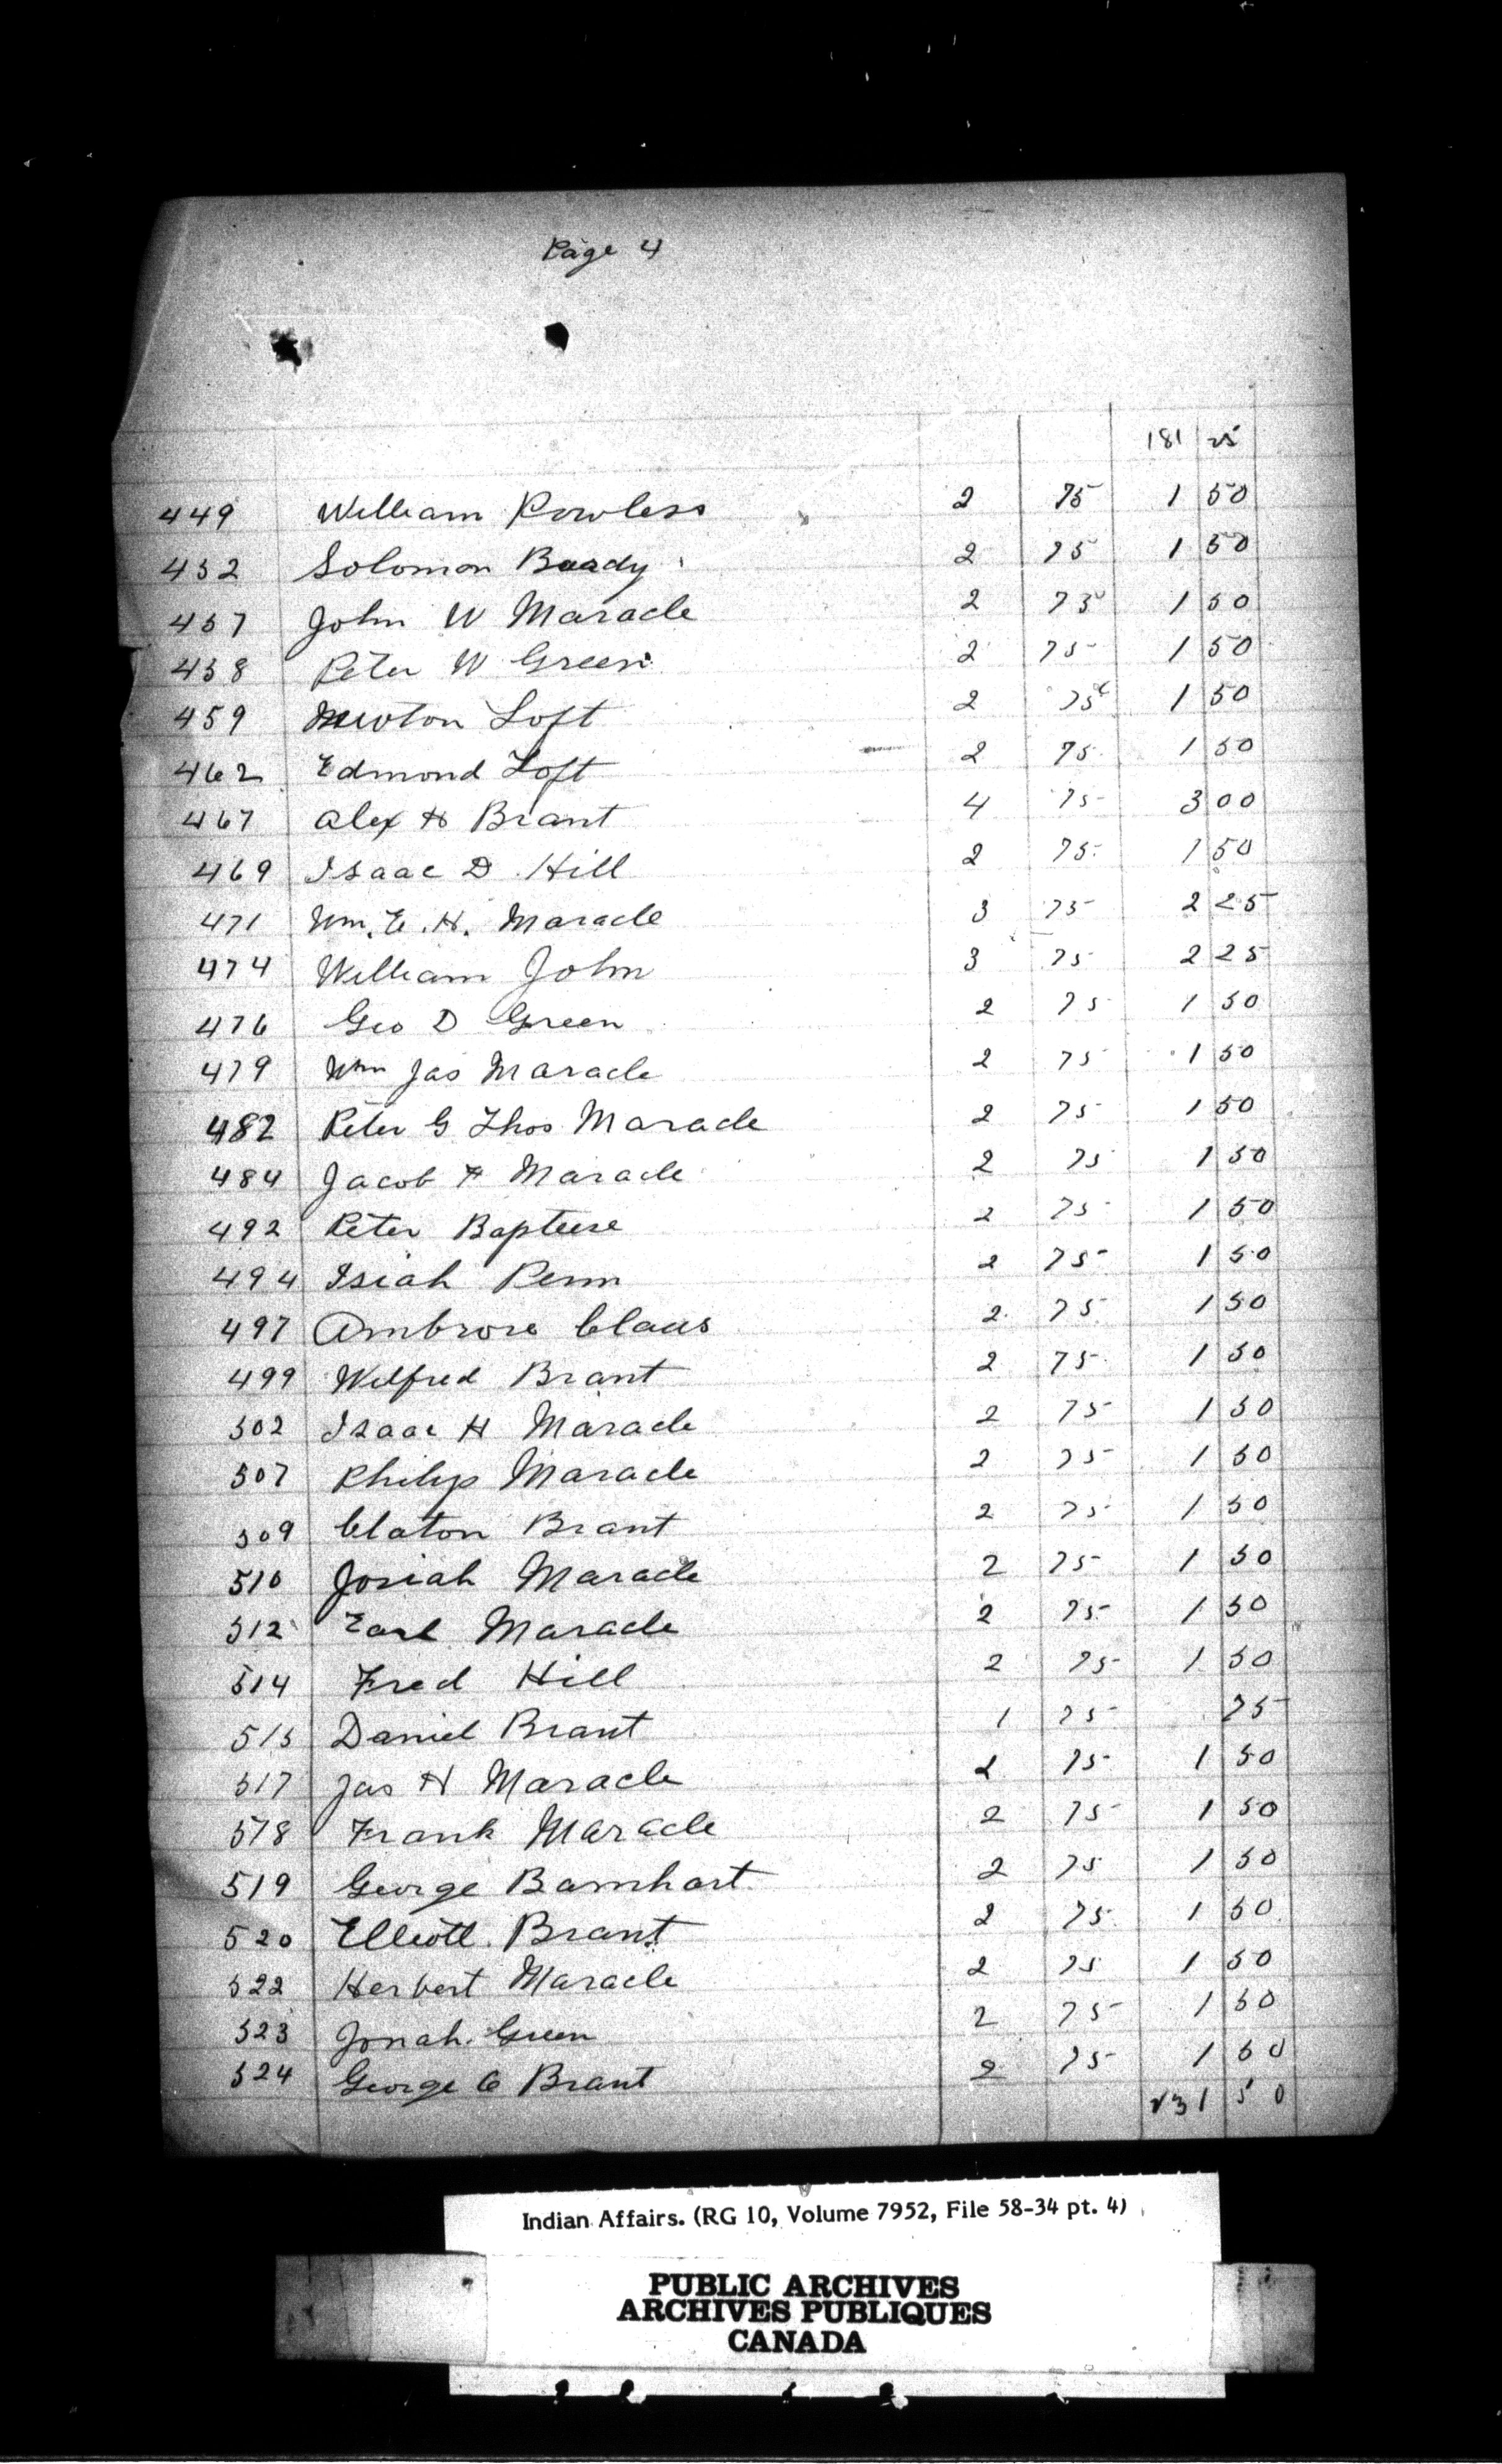 Page 4
181 25
449 William Powless 2 75 1 50
452 Solomon Brady 2 75 1 50
457 John W Maracle 2 75 1 50
458 Peter W Green 2 75 1 50
459 Newton Loft 2 75 1 50
462 Edmond Loft 2 75 1 50
467 Alex H Brant 4 75 3 00
469 Isaac D Hill 2 75 1 50
471 Wm. E. H. Maracle 3 75 2 25
474 William John 3 75 2 25
476 Geo D Green 2 75 1 50
479 Wm Jas Maracle 2 75 1 50
482 Peter G Thos Maracle 2 75 1 50
484 Jacob F Maracle 2 75 1 50
492 Peter Bapteese 2 75 1 50
494 Isiah Penn 2 75 1 50
497 Ambrose Claus 2 75 1 50
499 Wilfred Brant 2 75 1 50
502 Isaac H Maracle 2 75 1 50
507 Philip Maracle 2 75 1 50
509 Claton Brant 2 75 1 50
510 Josiah Maracle 2 75 1 50
512 Earl Maracle 2 75 1 50
514 Fred Hill 2 75 1 50
515 Daniel Brant 1 75 75
517 Jas H Maracle 2 75 1 50
518 Frank Maracle 2 75 1 50
519 George Barnhart 2 75 1 50
520 Elliott Brant 2 75 1 50
522 Herbert Maracle 2 75 1 50
523 Jonah Green 2 75 1 50
524 George C Brant 2 75 1 50
231 50
Indian Affairs. (RG 10, Volume 7952, File 58-34 pt. 4)
PUBLIC ARCHIVES
ARCHIVES PUBLIQUES
CANADA